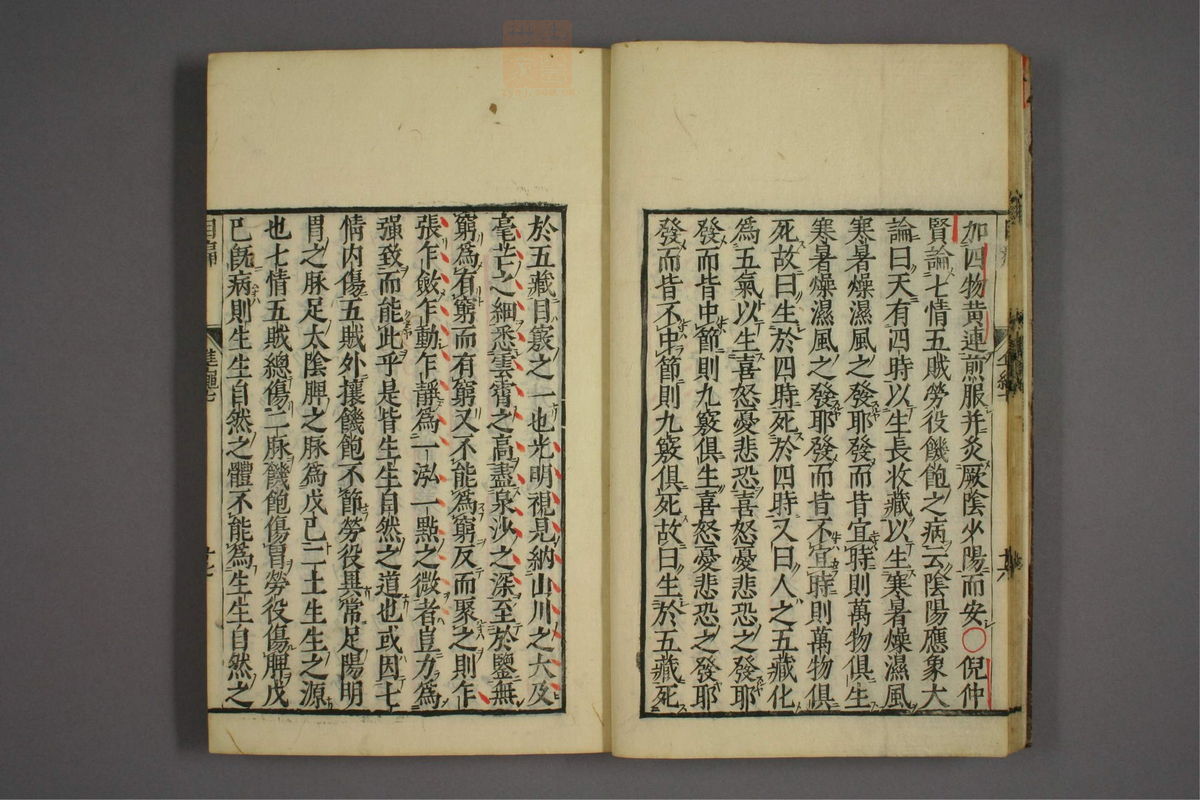 加四物黄連煎服并灸厥陰少陽而安〇倪仲
賢論七情五賊勞役饑飽之病云陰陽應象大
論曰天有四時以生長收藏以生寒暑燥濕風
寒暑燥濕風之發耶發而皆宜時則萬物俱生
寒暑燥濕風之發耶發而皆不宜時則萬物俱
死故曰生於四時死於四時又曰人之五藏化
爲五氣以生喜怒憂悲恐喜怒憂悲恐之發耶
發而皆中節則九竅俱生喜怒憂悲恐之發耶
發而皆不中節則九竅俱死故曰生於五藏死
於五藏目竅之一也光明視見納山川之大及
毫芒之細悉雲霄之高盡泉沙之深至於鑒無
窮爲有窮而有窮又不能爲窮反而聚之則乍
張乍斂乍動乍靜爲一泓一點之微者豈力爲
强致而能此乎是皆生生自然之道也或因七
情内傷五賊外攘饑飽不節勞役異常足陽明
胃之脉足太陰脾之脉爲戊己二土生生之源
也七情五賊總傷二脉饑飽傷胃勞役傷脾戊
已既病則生生自然之體不能爲生生自然之